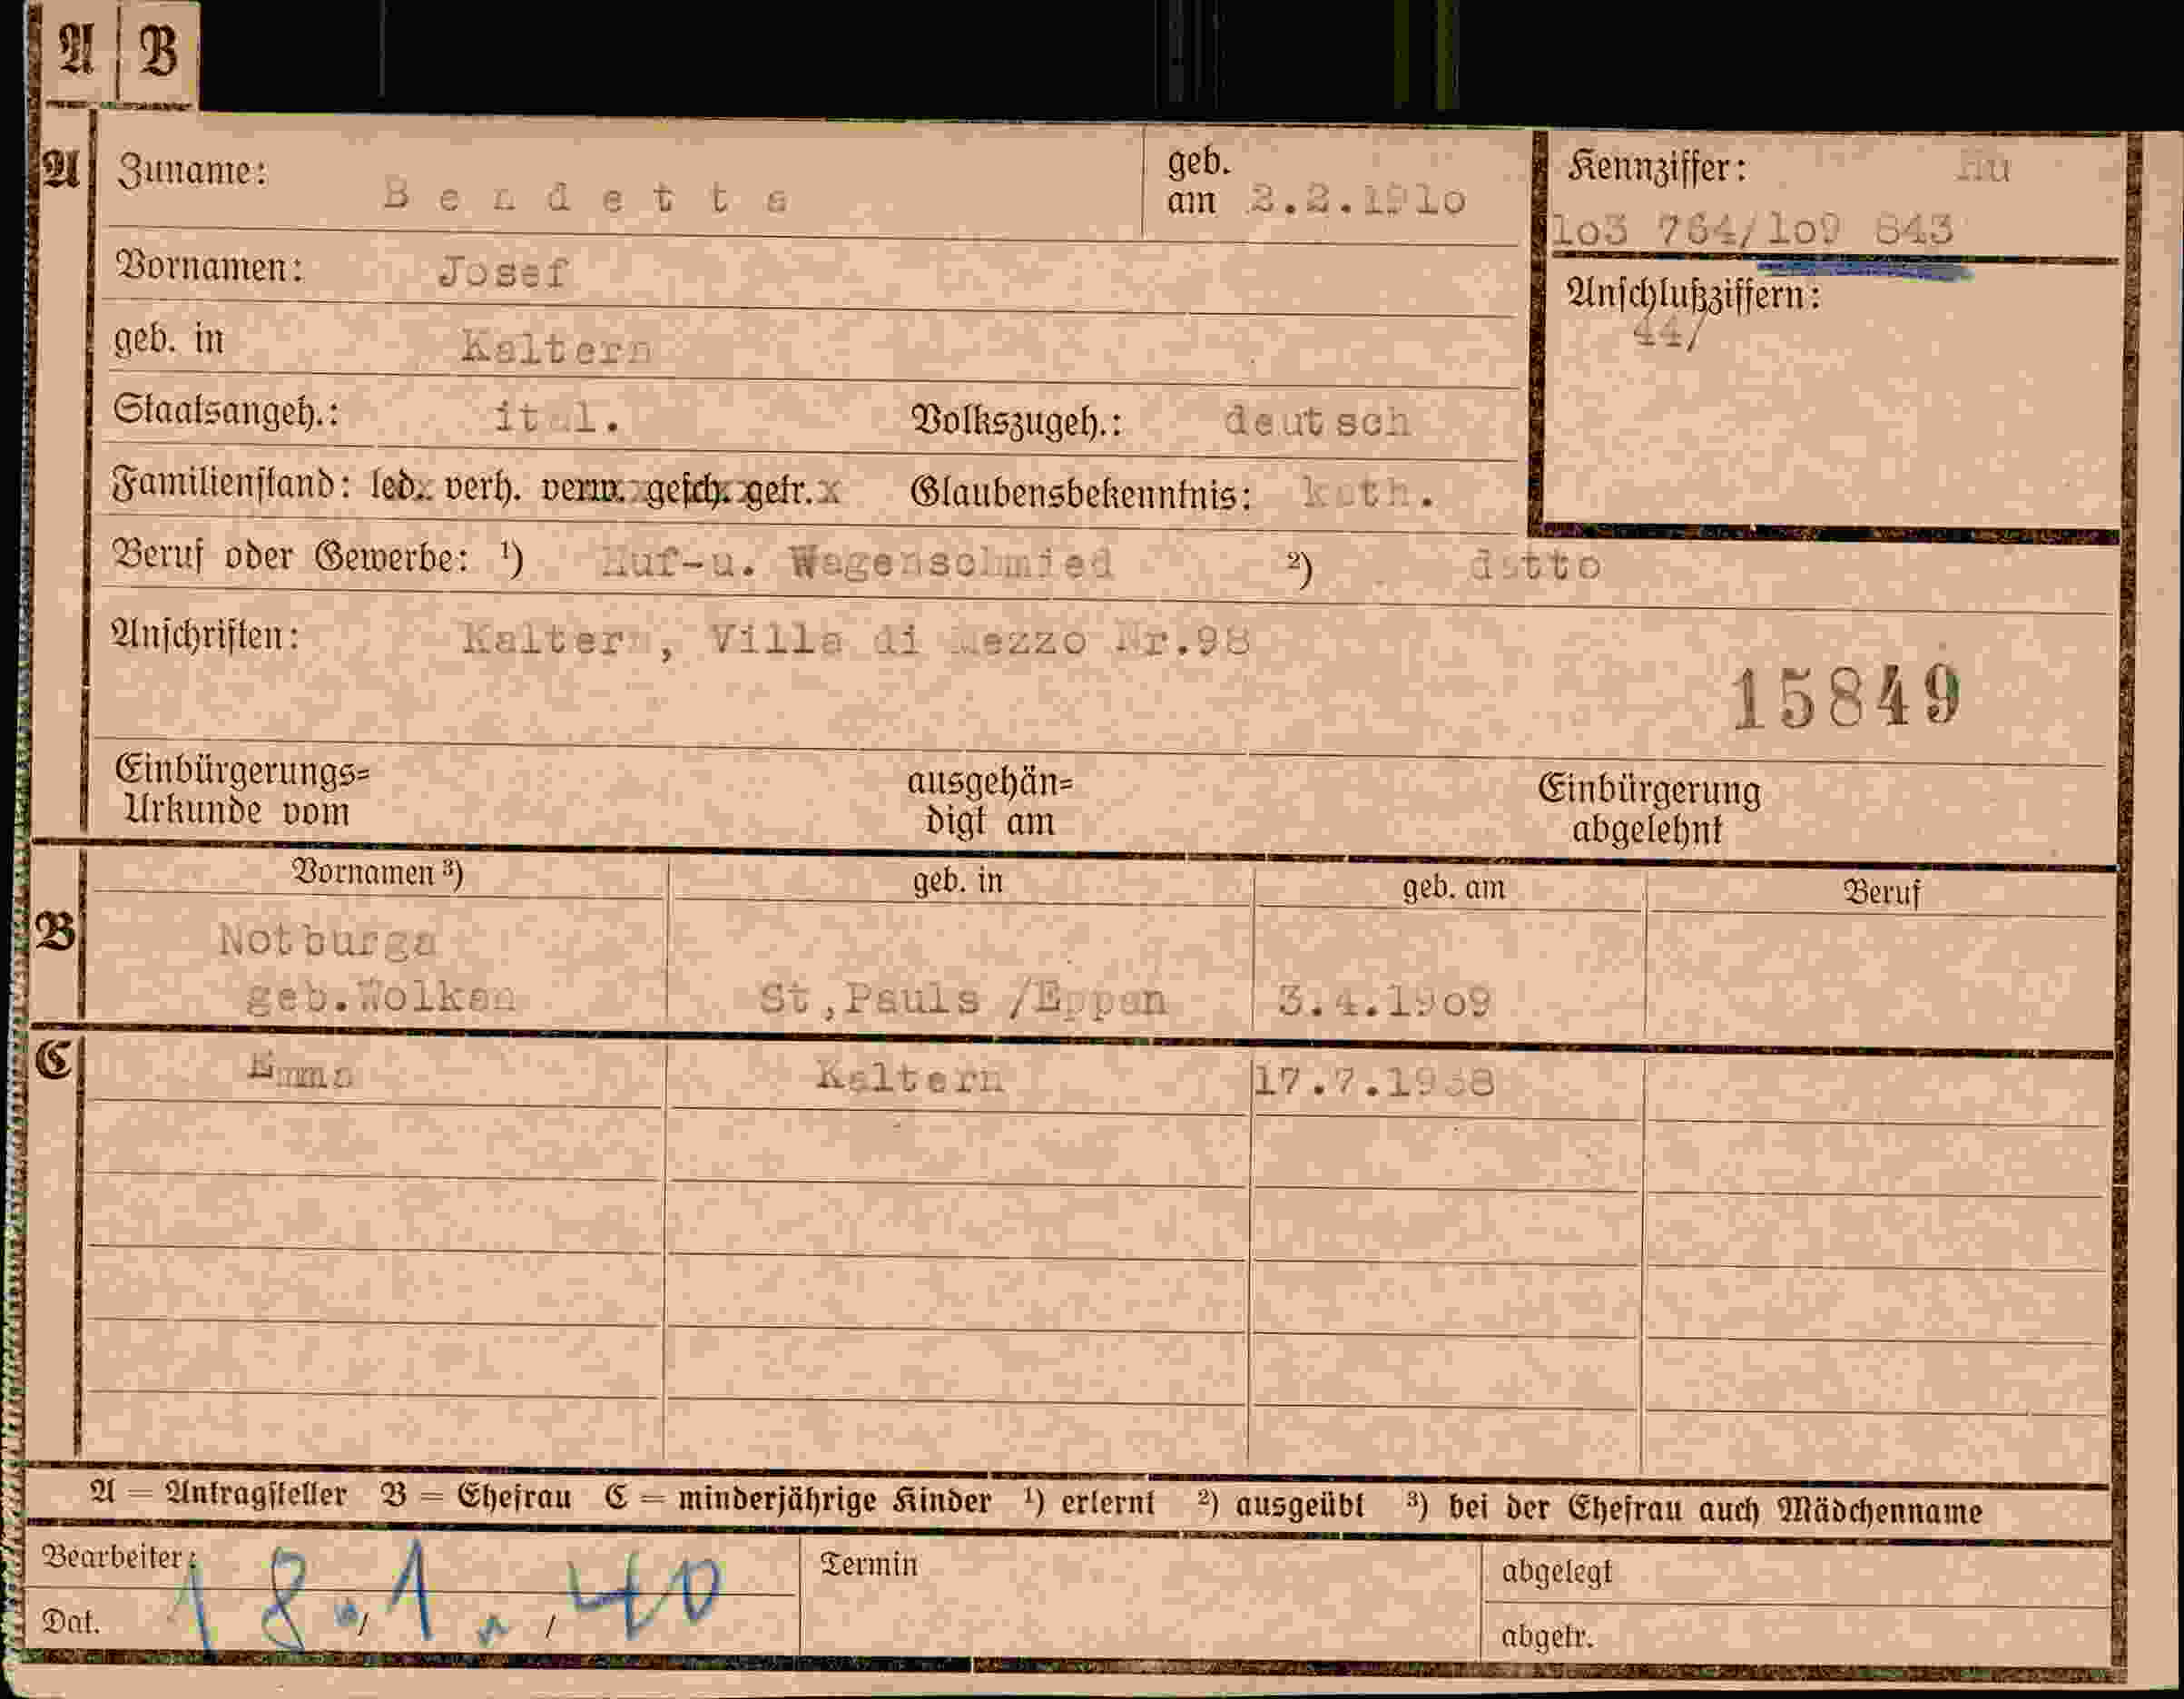 A B
A Zuname: Bendetta geb. am 2.2.1910 Kennziffer: Hu
103 764/109 843
Vornamen: Josef
Anschlußziffern:
44/
geb. in Kaltern
Staatsangeh.: ital. Volkszugeh.: deutsch
Familienstand: led. verh. verw. gesch. getr. Glaubensbekenntnis: kath.
Beruf oder Gewerbe: ¹) Huf-u. Wagenschmied ²) detto
Anschriften: Kaltern, Villa di Mezzo Nr.98
15849
Einbürgerungs= Urkunde vom ausgehän= digt am Einbürgerung abgelehnt
Vornamen ³) geb. in geb. am Beruf
B Notburga
geb.Wolkan St,Pauls /Eppan 3.4.1909
C Emma Kaltern 17.7.1938
A = Antragsteller B = Ehefrau C = minderjährige Kinder ¹) erlernt ²) ausgeübt ³) bei der Ehefrau auch Mädchenname
Bearbeiter: Termin abgelegt
Dat. 18.1.40 abgetr.